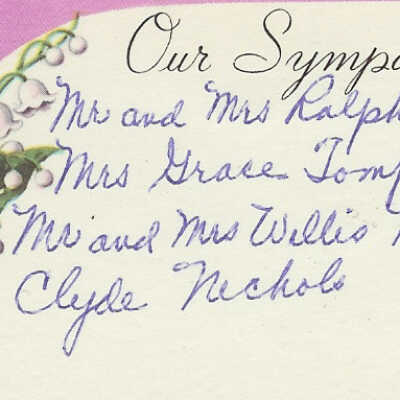 Our Sympa
Mr and Mrs Ralph
Mrs Grace Tomp
Mr and Mrs Willis
Clyde Nechols